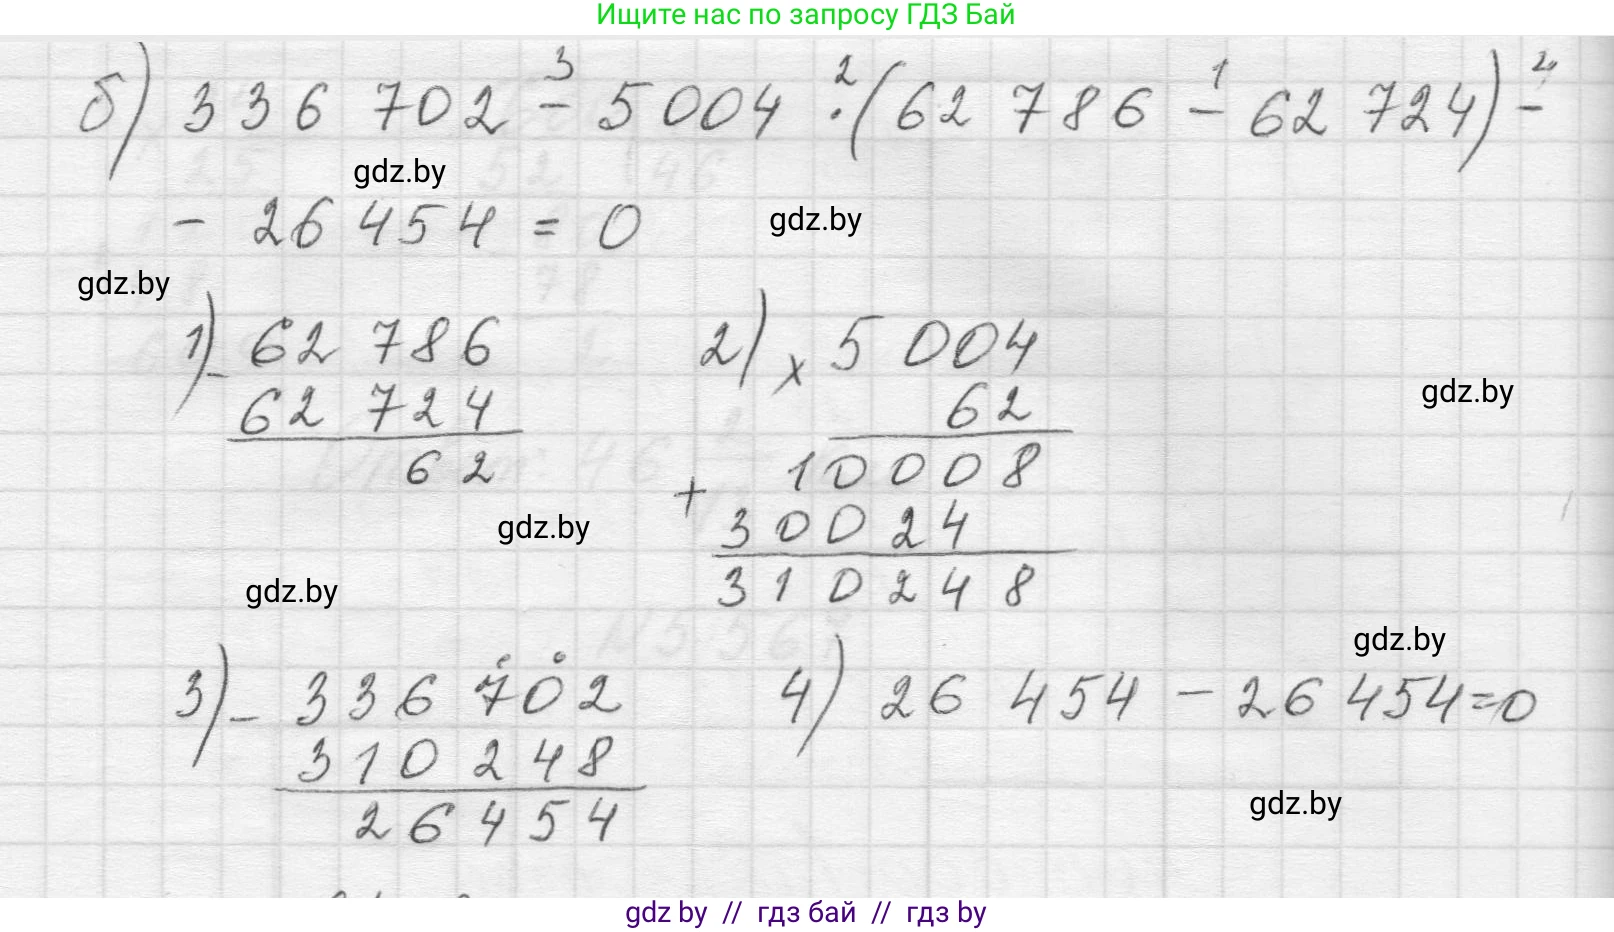 Ищите нас по запросу ГДЗ Бай
б) 336 702 - 5004 · (62 786 - 62 724) -
3 2 1 4
gdz.by
- 26 454 = 0
gdz.by
gdz.by
1) - 62 786
62 724
62
2) x 5 004
62
10008
+
30024
310248
gdz.by
gdz.by
gdz.by
gdz.by
3) - 336 702
310 248
26 454
4) 26 454 - 26 454 = 0
gdz.by
gdz by // гдз бай // гдз by